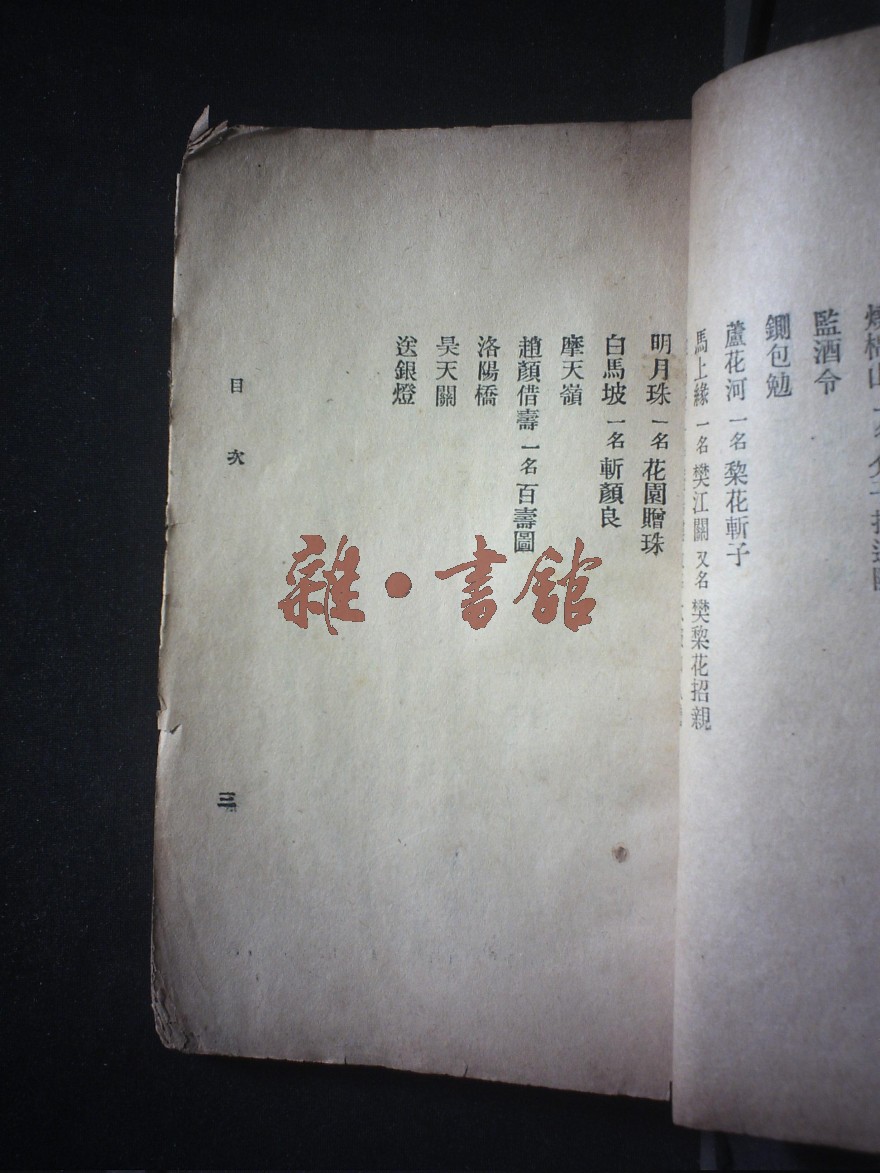 監酒令
鍘包勉
蘆花河 一名 棃花斬子
馬上緣 一名 樊江關 又名 樊棃花招親
明月珠 一名 花園贈珠
白馬坡 一名 斬顏良
摩天嶺
趙顏借壽 一名 百壽圖
洛陽橋
昊天關
送銀燈
目次
三
雜·書館